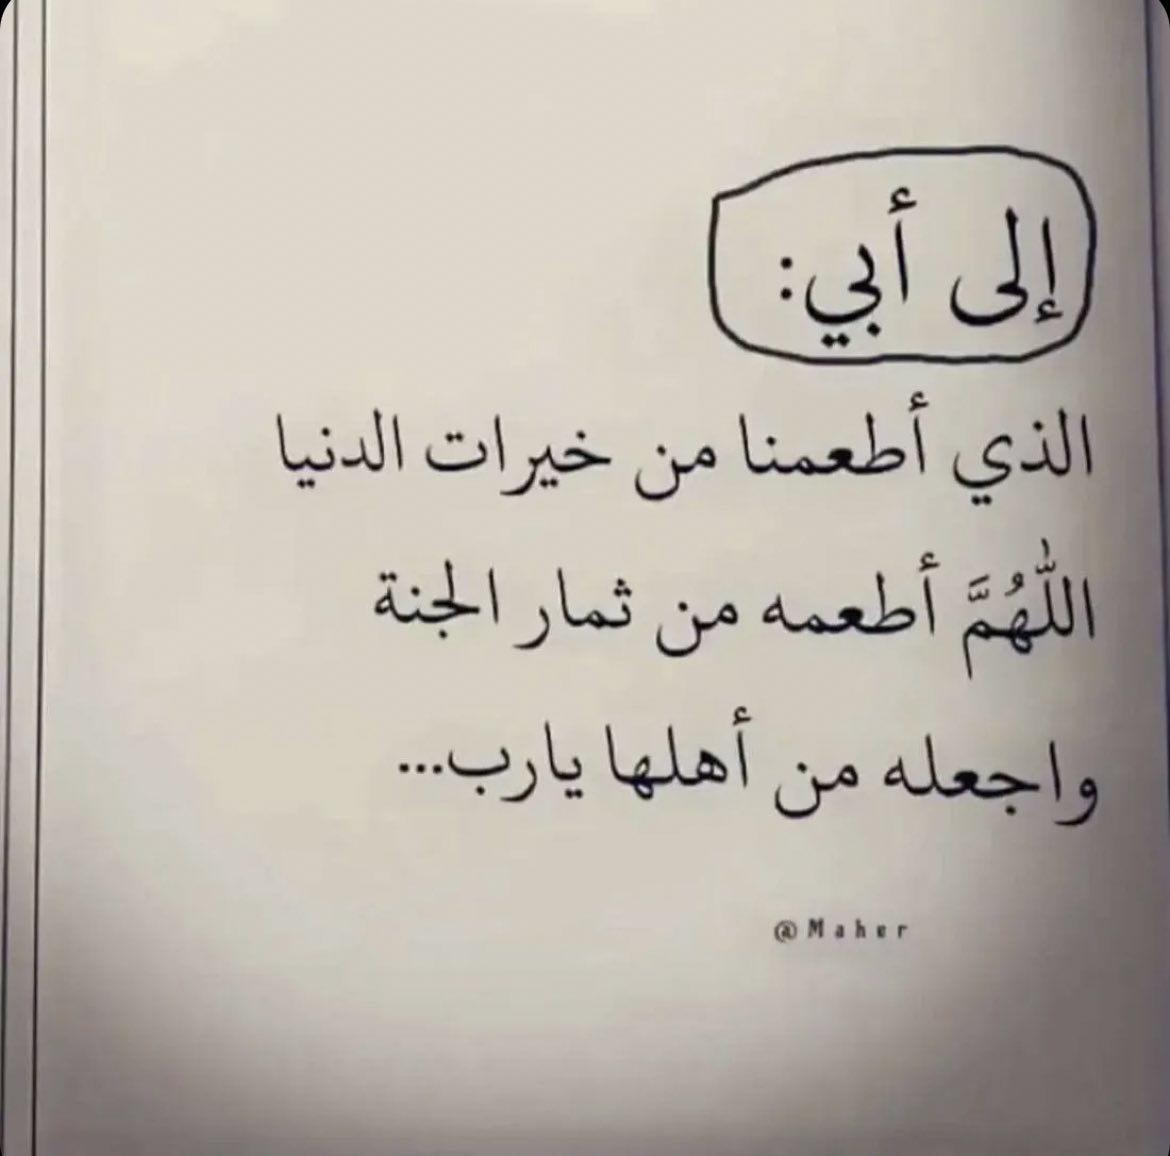 إلى أبي:
الذي أطعمنا من خيرات الدنيا
اللّٰهُمَّ أطعمه من ثمار الجنة
واجعله من أهلها يارب...
@Maher